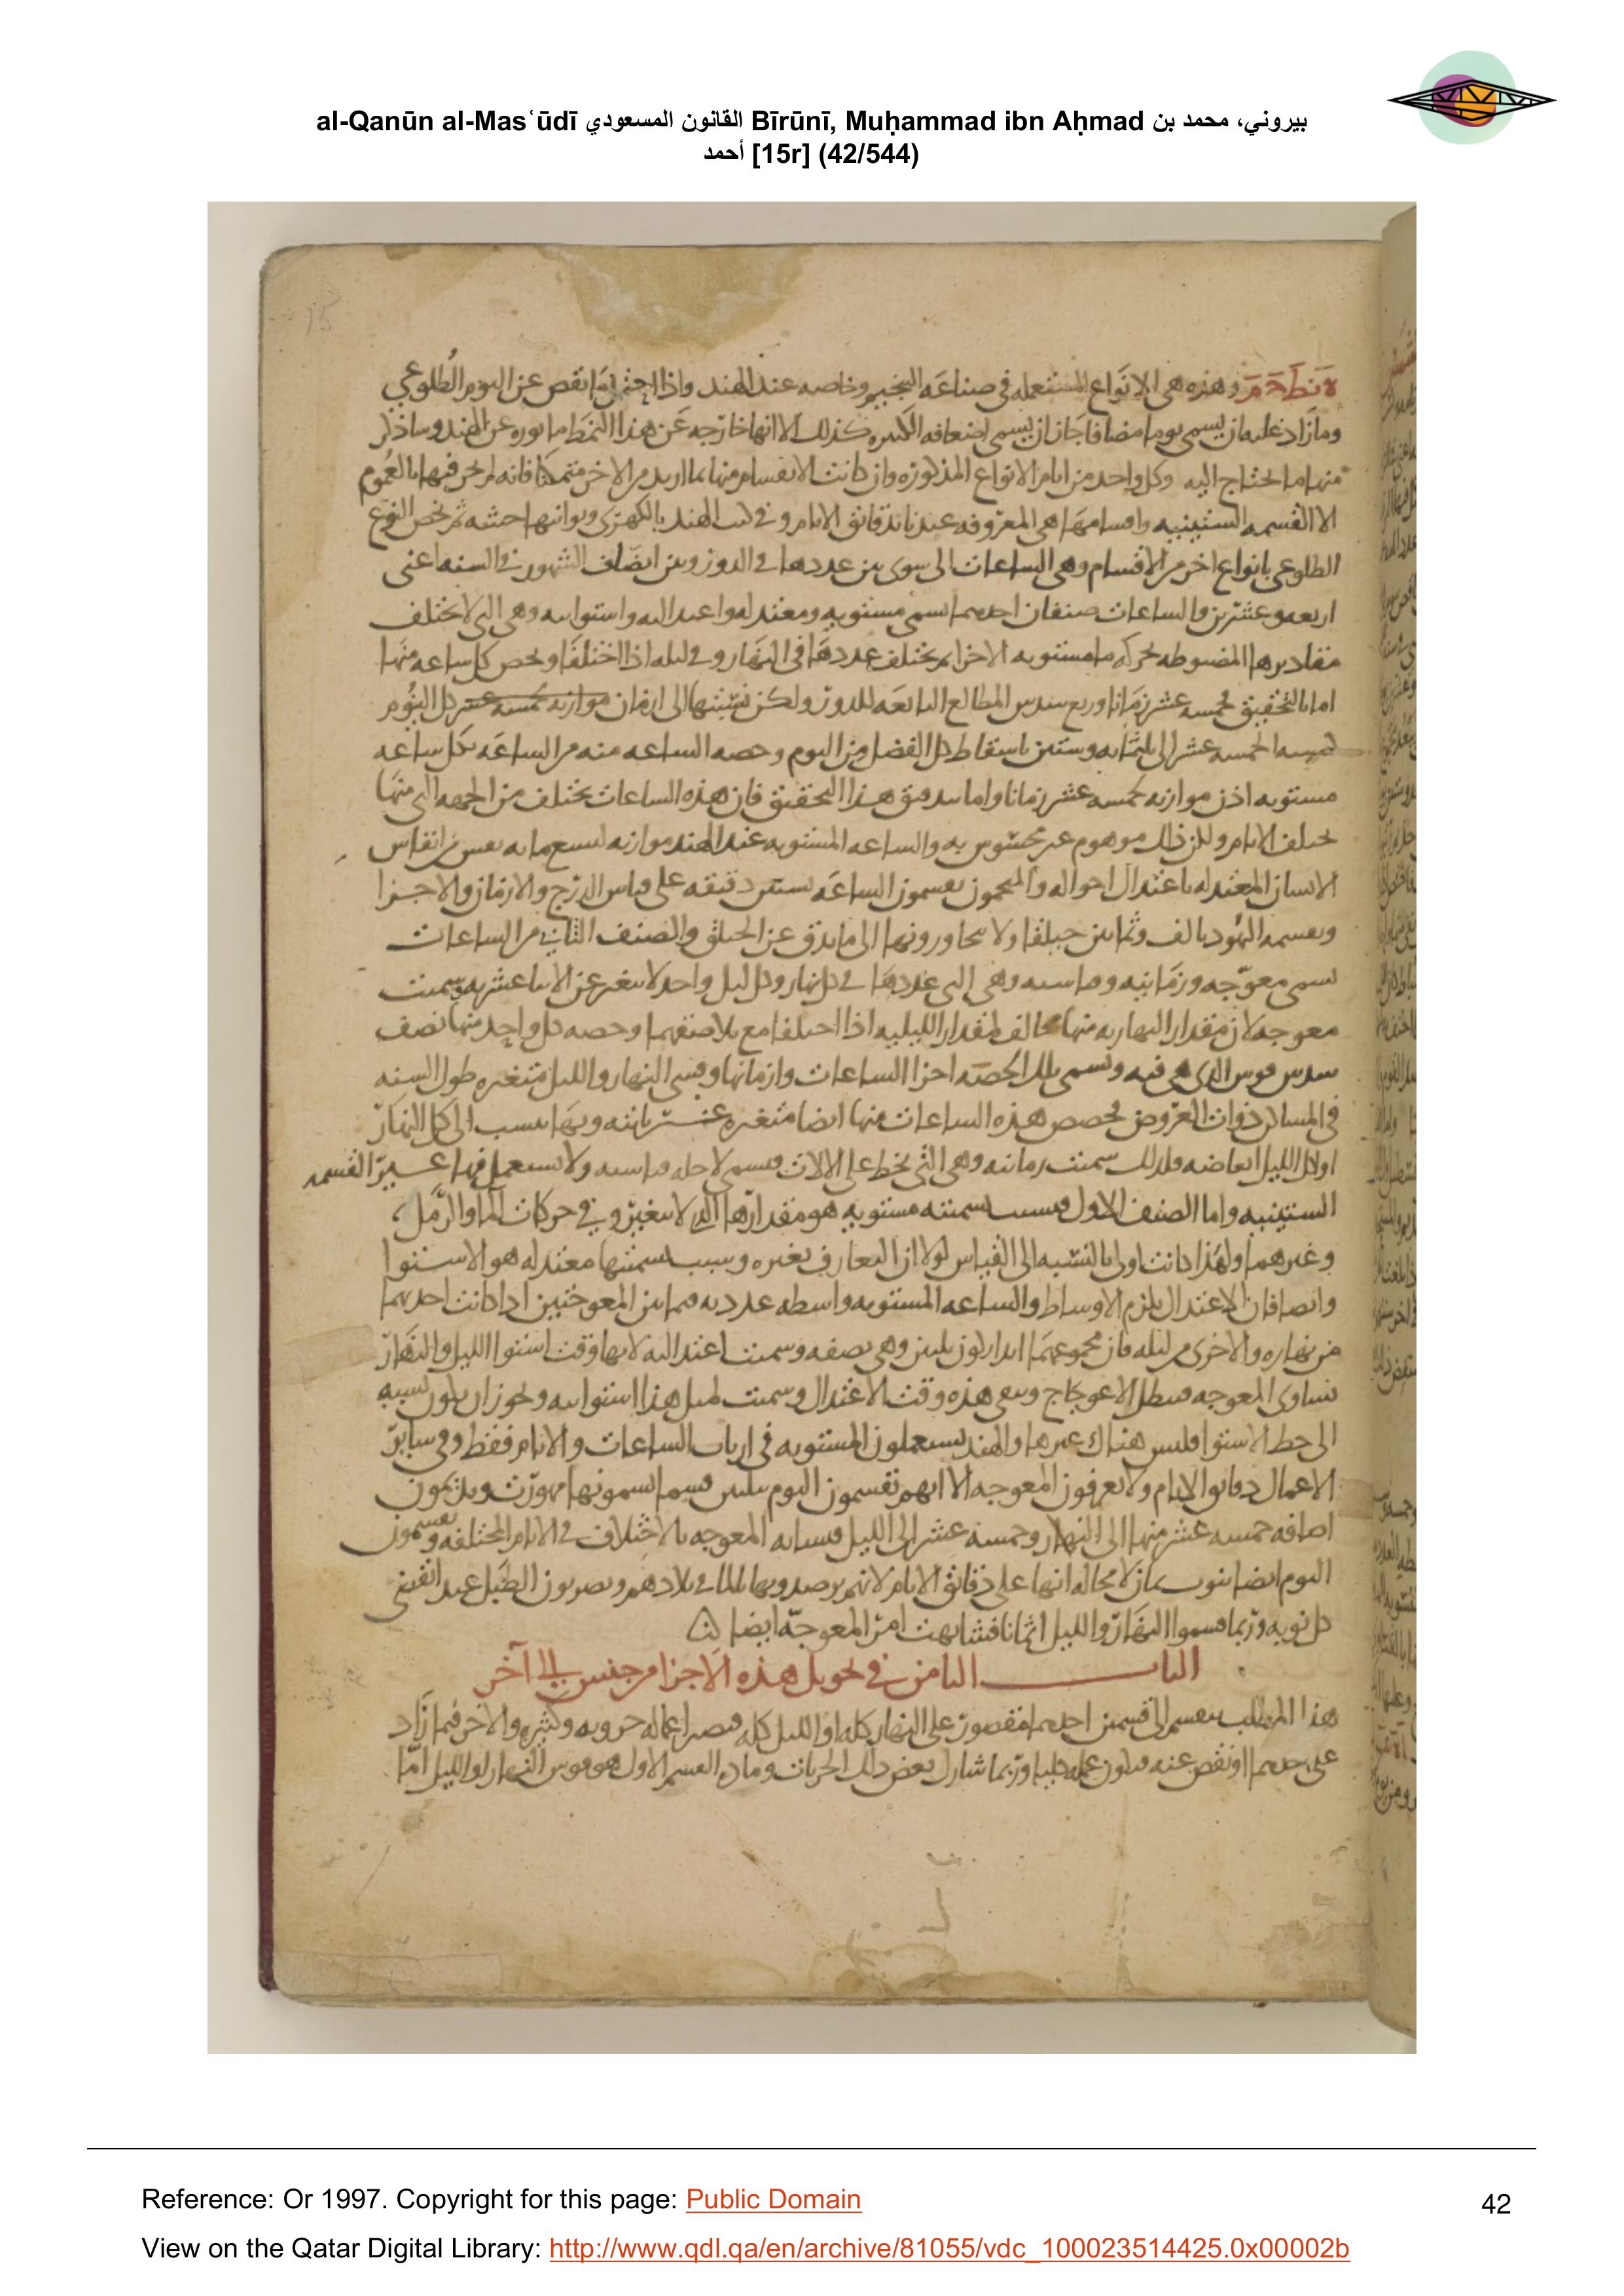 al-Qanūn al-Masʿūdī القانون المسعودي Bīrūnī, Muḥammad ibn Aḥmad بيروني، محمد بن
أحمد [15r] (42/544)
وهذه هى الانواع المستعمله فى صناعه التنجيم وخاصه عند الهند واذا نقص عن اليوم الطلوعى
وما زاد عليه ان يسمى يوما مضافا جاز ان يسمى اضعافه الكثيره كذلك الا انها خارجه عن هذا النمط ما ثوره عن الهند وساذكر
منها ما احتاج اليه وكل واحد من ايام الانواع المذكوره وان كانت الانقسام منها بما اريد من الاخر فانه لم يجر فيها بالعموم
الا القسمه الستينيه واقسامها هى المعروفه عندنا بدقائق الايام و فى كتب الهند وثوانيها ثم يخص النوع
الطلوعى بانواع اخر من الاقسام وهى الساعات التى سوى بين عددها فى الدور وبين انصاف الشهور فى السنه اعنى
اربعه وعشرين والساعات صنفان احدهما تسمى مستويه ومعتدله واعتداليه واستوائيه وهى التى لا تختلف
مقاديرها المضبوطه بحركه ما مستويه الاجزا بل يختلف عددها فى النهار وفى ليله اذا اختلفا ويخص كل ساعه منها
اما بالتحقيق فخمسه عشر زمانا وربع سدس المطالع التابعه للدور ولكن نسبتها الى ازمان كل اليوم
الخمسه عشر الى ثلثمايه وستين باسقاط كل الفضل من اليوم وحصه الساعه منه من الساعه فكل ساعه
مستويه اذن موازيه لخمسه عشر زمانا واما تدقيق هذا التحقيق فان هذه الساعات تختلف من الجهه التى منها
تختلف الايام ولكن ذلك موهوم غير محسوس به والساعه المستويه عند الهند موازيه لتسع مايه نفس من انفاس
الانسان المعتدله باعتدال احواله والمنجمون يقسمون الساعه بستين دقيقه على قياس الدرج والازمان والاجزا
ويقسمها اليهود بالف وثمانين حيلقا ولا يتجاوزونها الى ما يدق عن الحيلق والصنف الثانى من الساعات
تسمى معوجه وزمانيه وقياسيه وهى التى عددها فى كل نهار وكل ليل واحد لا يتغير عن الاثنا عشريه وسميت
معوجه لان مقدار النهاريه منها مخالف لمقدار الليليه اذا اختلفا مع تلاصقهما وحصه كل واحد منها نصف
سدس قوس الذى هى فيه وتسمى تلك الحصه اجزا الساعات وازمانها وقسى النهار والليل متغيره طول السنه
فى المساكن ذوات العروض فحصص هذه الساعات منها ايضا متغيره غير ثابته وبها ينسب الى كل النهار
او كل الليل ابعاضه ولذلك سميت زمانيه وهى التى تخط على الالات فتسمى لاجله قياسيه ولا يستعمل فيها غير القسمه
الستينيه واما الصنف الاول فسبب تسميته مستويه هو مقدارها الذى لا يتغير و فى حركات الما والرمل
وغيرهما ولهذا كانت اولى بالنسبه الى القياس لولا ان التعارف بغيره وسبب تسميتها معتدله هو الاستوا
وايضا فان الاعتدال يلزم الاوساط والساعه المستويه واسطه عدديه فيما بين المعوجتين اذا كانت احديهما
من نهاره والاخرى من ليله فان مجموعهما ابدا يكون ثلثين وهى نصفه وسميت اعتداليه لانها وقت استوا الليل والنهار
تساوى المعوجه فيبطل الاعوجاج وتبقى هذه وقت الاعتدال وسميت لمثل هذا استوائيه ويجوز ان يكون نسبه
الى خط الاستوا فليس هناك غيرها والهند يستعملون المستويه فى ارباب الساعات والايام فقط وفى سائر
الاعمال دقائق الايام ولا يعرفون المعوجه الا انهم يقسمون اليوم بثلثين قسما يسمونها مهورت ويلزمون
اضافه خمسه عشر منها الى النهار وخمسه عشر الى الليل فتشابه المعوجه بالاختلاف فى الايام المختلفه ويقسمون
اليوم ايضا بنوب ثمان لا محاله انها على دقائق الايام لانهم يرصدونها بالما فى بلادهم ويضربون الطبل عند تقضى
كل نوبه وربما قسموا النهار والليل اثمانا فتشابهت امر المعوجه ايضا
الباب الثامن فى تحويل هذه الاجزا من جنس الى آخر
هذا المطلب ينقسم الى قسمين احدهما مقصور على النهار كله او الليل كله فتصير اعماله جزويه وكثيره والاخر فيما زاد
على احدهما او نقص عنه فيكون عمله كليا وربما شارك بعض ذلك الجزيات ومادة القسم الاول هو قوس النهار او الليل اما
Reference: Or 1997. Copyright for this page: Public Domain
42
View on the Qatar Digital Library: http://www.qdl.qa/en/archive/81055/vdc_100023514425.0x00002b